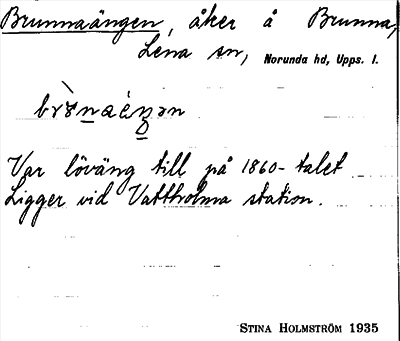 Brunnaängen, åker å Brunna,
Lena sn, Norunda hd, Upps. l.
Var löväng till på 1860-talet
Ligger vid Vattholma station.
STINA HOLMSTRÖM 1935